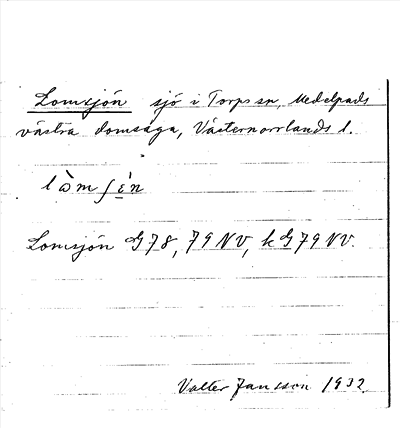 Lomsjön sjö i Torps sn, Medelpads
västra domsaga, Västernorrlands l.
lòmʃèn
Lomsjön G78, 79NV, kG79NV.
Valter Jansson 1932